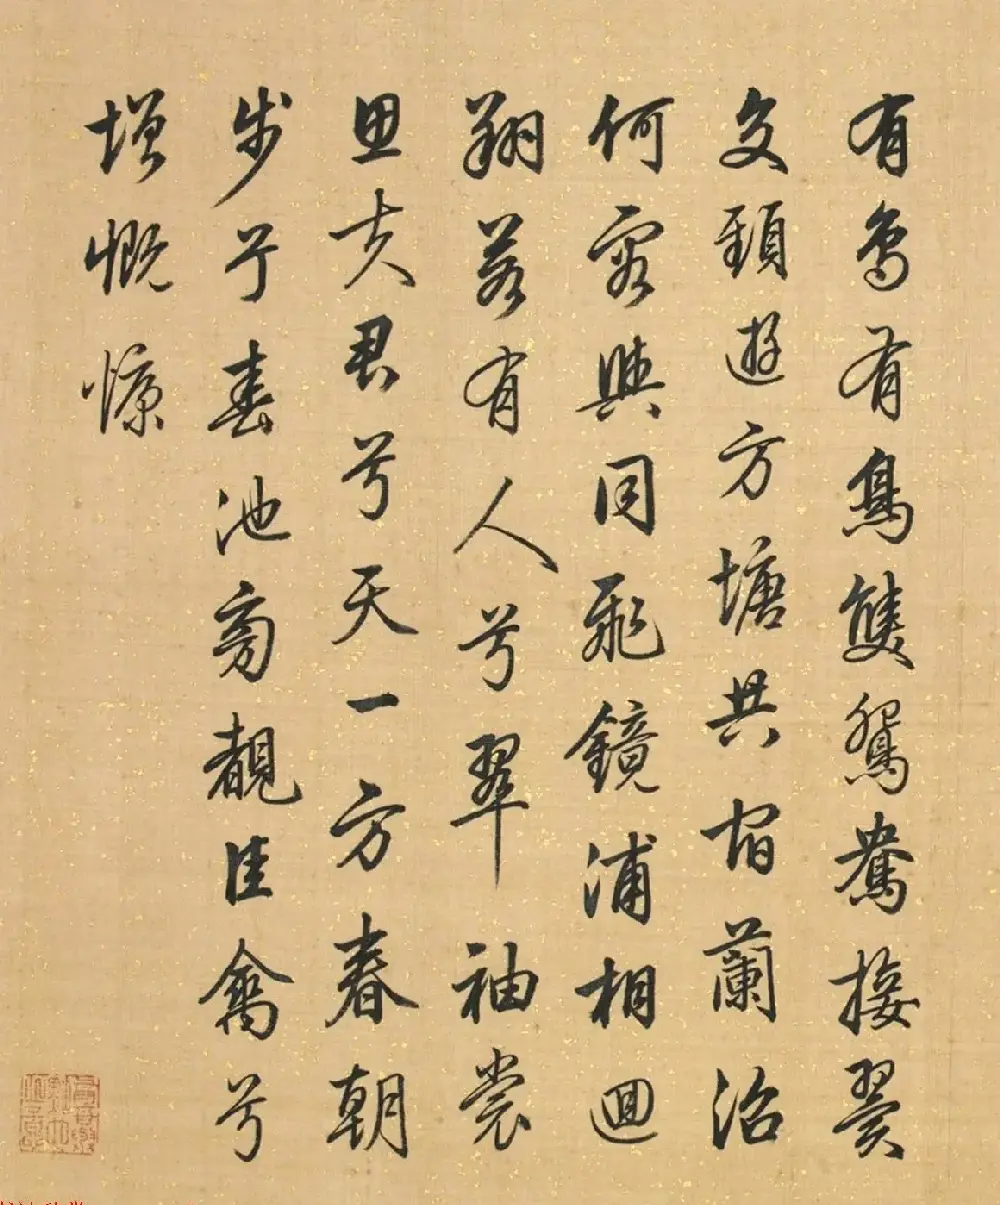 有鳥有鳥雙鴛鴦接翼
交頸遊方塘共宿蘭沼
何容與同飛鏡浦相迴
翔若有人兮翠袖裳
思夫君兮天一方春朝
步兮池旁覩佳禽兮
增慨慷